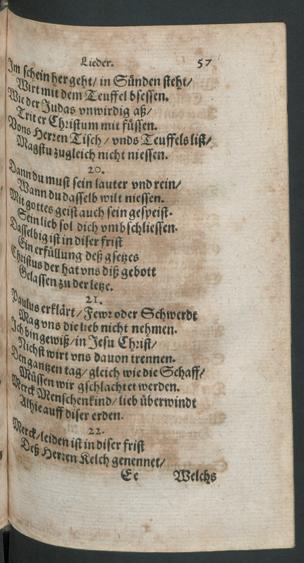 Lieder. 57
Im schein her geht/ in Sünden steht/
Wirt mit dem Teuffel bsessen.
Wie der Judas vnwirdig aß/
Trit er Christum mit füssen.
Vons Herzen Tisch/ vnds Teuffels list/
Magstu zugleich nicht niessen.
20.
Dann du must sein lauter vnd rein/
Wann du dasselb wilt niessen.
Mit gottes geist auch sein gespeist.
Sein lieb sol dich vmbschliessen.
Dasselbig ist in diser frist
Ein erfüllung deß gsetzes
Christus der hat vns diß gebott
Gelassen zu der letze.
21.
Paulus erklärt/ Fewr oder Schwerdt
Mag vns die lieb nicht nehmen.
Ich bin gewiß/ in Jesu Christ/
Nichst wirt vns dauon trennen.
Den gantzen tag/ gleich wie die Schaff/
Müssen wir gschlachtet werden.
Merck Menschenkind/ lieb überwindt
Alhie auff diser erden.
22.
Merck/ leiden ist in diser frist
Deß Herzen Kelch genennet/
Ee Welchs